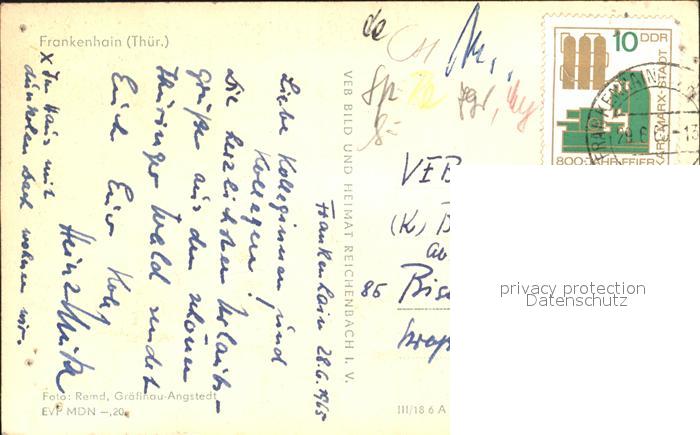 Frankenhain (Thür.)
Frankenhain 28.6.1965
Liebe Kolleginnen und
Kollegen!
Die herzlichsten Urlaubs-
grüße aus dem schönen
Thüringer Wald sendet
Euch Euer Koll.
Heinz
X Im Haus mit
dunklem Dach wohnen wir.
Foto: Remd, Gräfinau-Angstedt
EVP MDN –,20
VEB BILD UND HEIMAT REICHENBACH I. V.
III/18 6 A
10 DDR
KARL-MARX-STADT
800-JAHR-FEIER
FRANKENHAIN
29.6.
VEB
(K)
85 Bis
privacy protection
Datenschutz